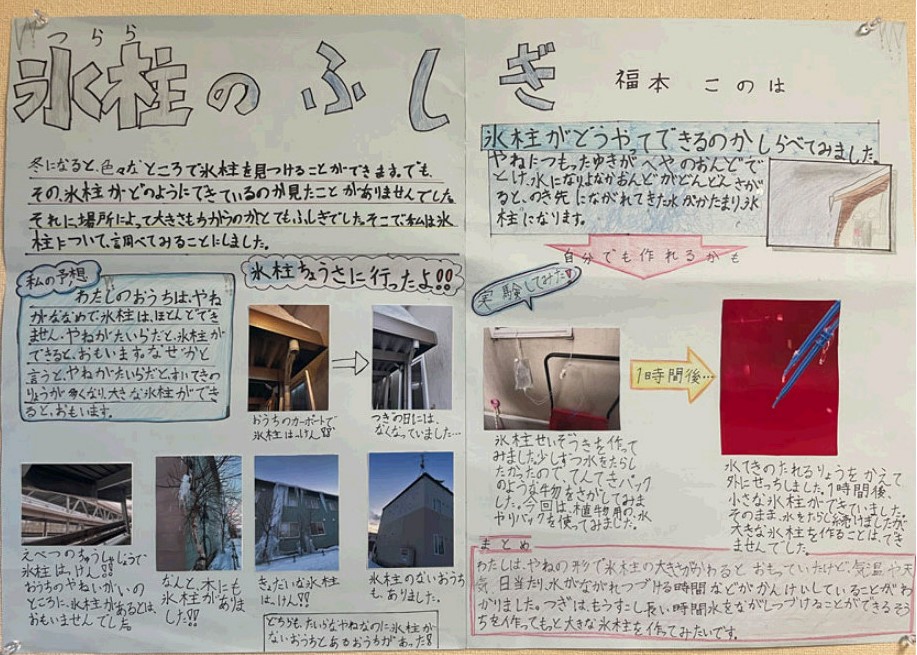 つらら
氷柱のふしぎ
福本 このは
冬になると、色々なところで氷柱を見つけることができます。でも、
その、氷柱がどのようにできているのか見たことがありませんでした。
それに場所によって大きさもちがうのがとてもふしぎでした。そこで、私は氷
柱について、調べてみることにしました。
私の予想
わたしのおうちは、やね
がななめで氷柱は、ほとんどでき
ません。やねがたいらだと、氷柱が
できると、おもいます。なぜかと
言うと、やねがたいらだと、すいてきの
りょうが多くなり、大きな氷柱ができ
ると、おもいます。
氷柱ちょうさに行ったよ!!
おうちのカーポートで
氷柱はっけん!!
つぎの日には、
なくなっていました…
えべつのちゅうしゃじょうで
氷柱はっけん!!
おうちのやねいがいの
ところに、氷柱があるとは、
おもいませんでした。
なんと、木にも
氷柱がありま
した!!
きょだいな氷柱
はっけん!!
氷柱のないおうち
も、ありました。
どちらも、たいらなやねなのに氷柱が
ないおうちとあるおうちがあった!
氷柱がどうやってできるのかしらべてみました。
やねにつもったゆきがへやのおんどで
とけ、水になりよなかおんどがどんどんさが
ると、のき先にながれてきた水がかたまり、氷
柱になります。
自分でも作れるかも
実験してみた!
1時間後…
氷柱せいぞうきを作って
みました。少しずつ水をたらし
たかったので、てんてきパック
のような物をさがしてみま
した。今回は、植物用の水
やりパックを使ってみました。
水てきのたれるりょうをかえて
外にせっちしました。1時間後、
小さな氷柱ができていました。
そのまま、水をたらし続けましたが
大きな氷柱を作ることは、でき
ませんでした。
まとめ
わたしは、やねの形で氷柱の大きさがかわると、おもっていたけど、気温や天
気、日当たり、水がながれつづける時間などがかんけいしていることがわ
かりました。つぎは、もうすこし長い時間水をながしつづけることができるそう
ちを作ってもっと大きな氷柱を作ってみたいです。